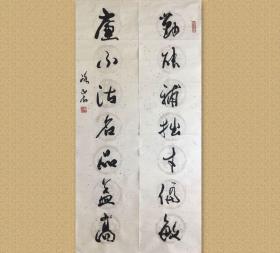 勤能補拙才偏敏
廉不沽名品益高